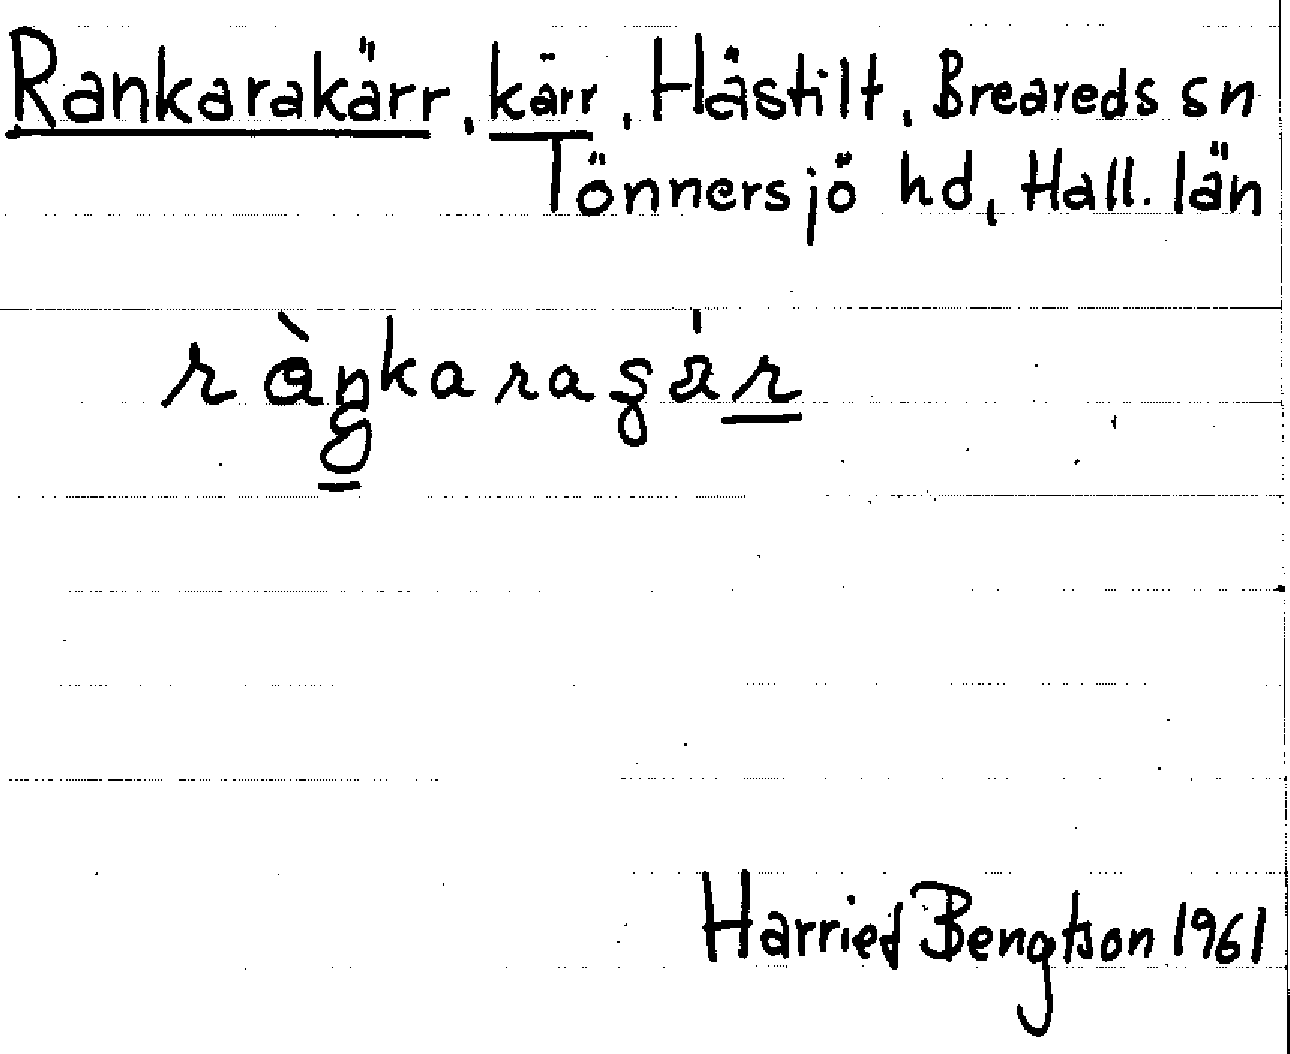 Rankarakärr, kärr, Håstilt, Breareds sn
Tönnersjö hd, Hall. län
ràŋkaraʂä́r
Harried Bengtson 1961